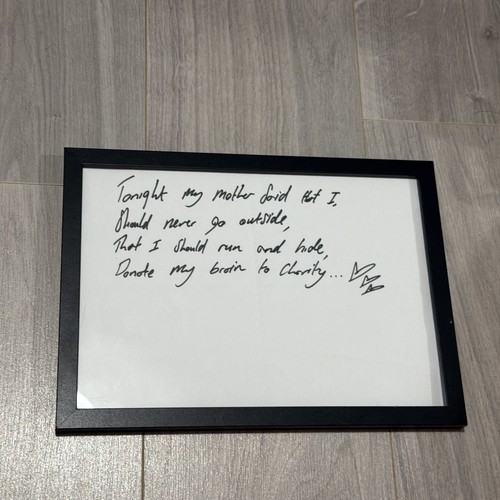 Tonight my mother said that I,
Should never go outside,
That I should run and hide,
Donate my brain to Charity...